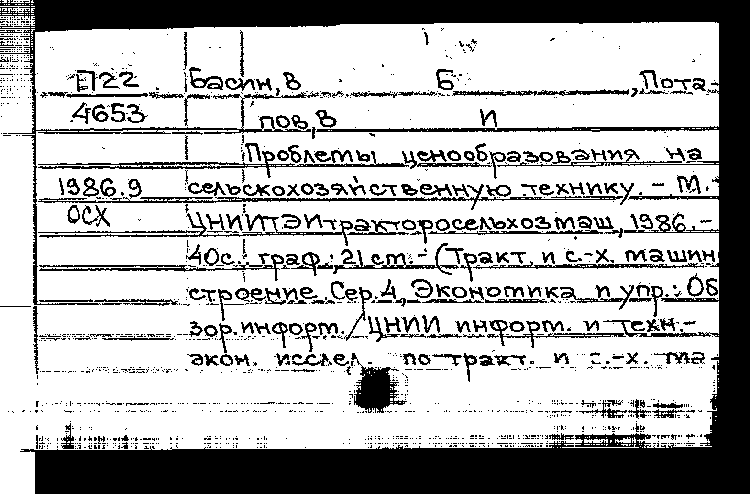 П22 Басин, В Б , Пота-
4653 пов, В И
Проблемы ценообразования на
1986.9 сельскохозяйственную технику. - М.:
ОСХ ЦНИИТЭИтракторосельхозмаш, 1986. -
40с.: граф.; 21 см. - (Тракт. и с.-х. машин
строение. Сер. 4, Экономика и упр.: Об
зор. информ. / ЦНИИ информ. и техн.-
экон. исслед. по тракт. и с.-х. ма-